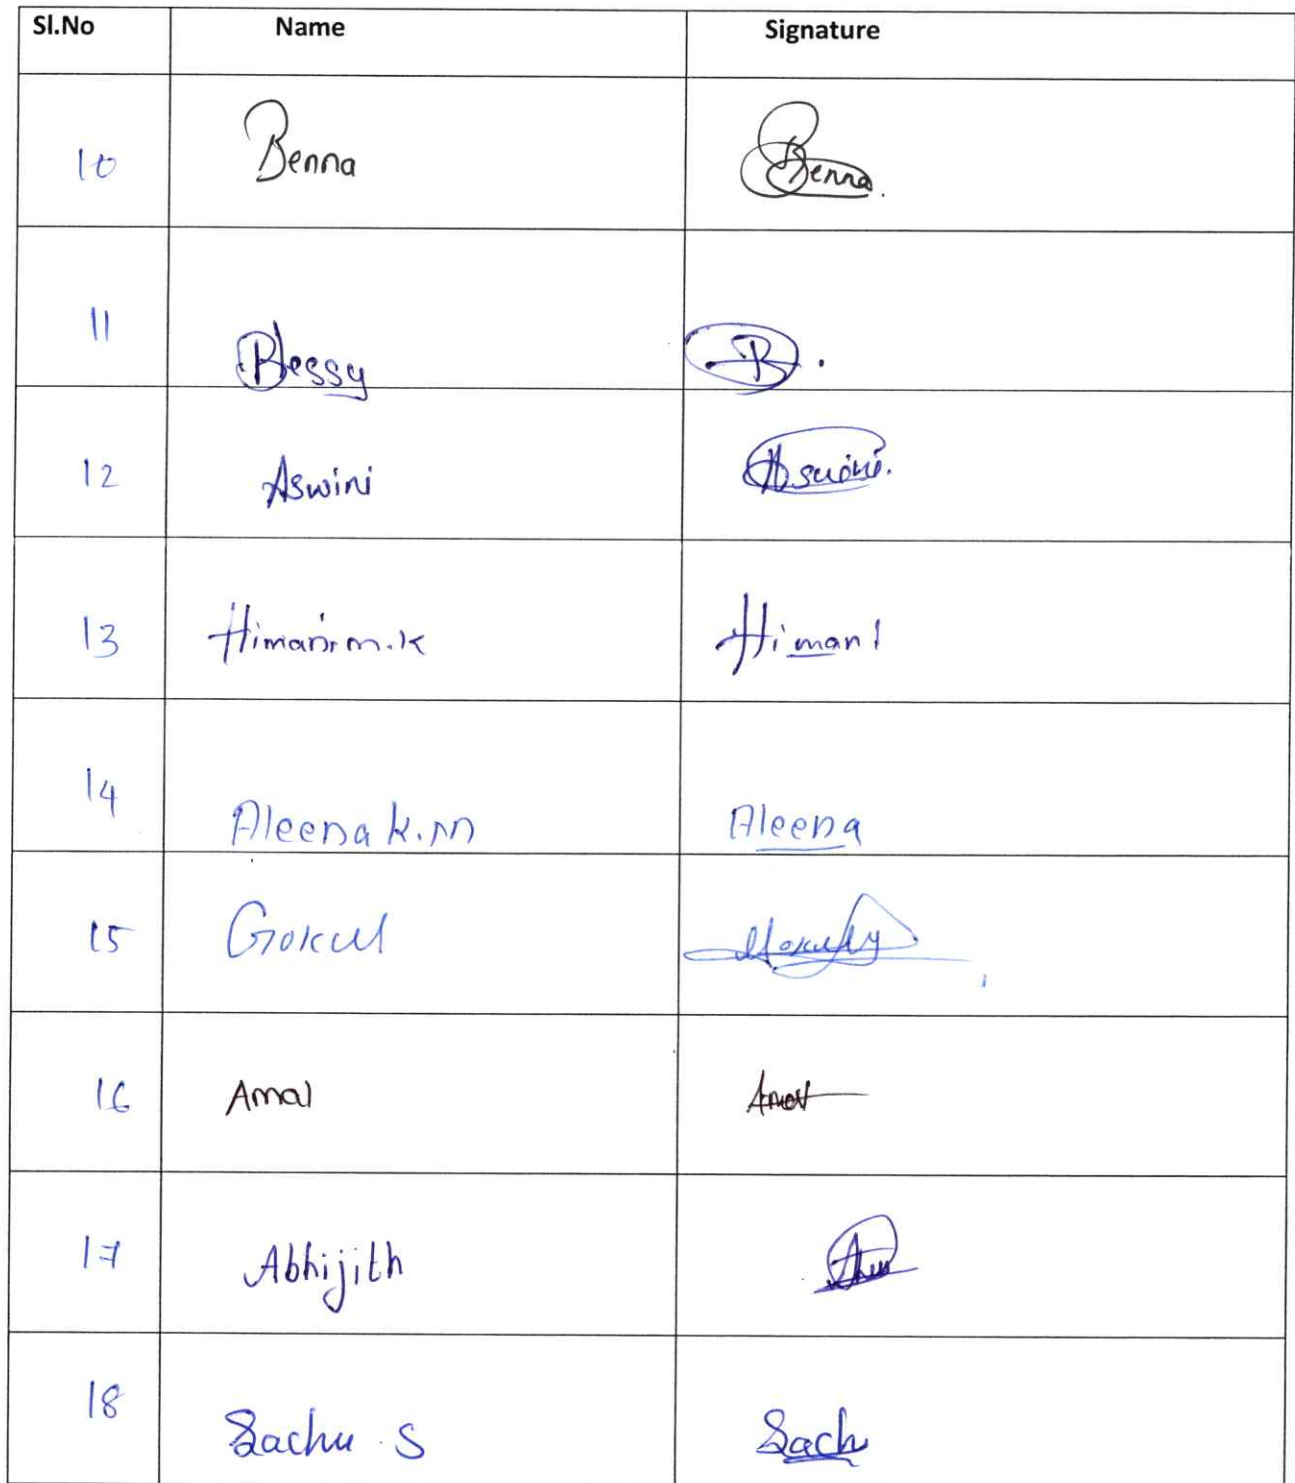 Sl.No Name Signature
10 Benna Benna.
11 Blessy B.
12 Aswini Aswini.
13 Himani.m.k Himani
14 Aleena k.m Aleena
15 Gokul
16 Amal Amal
17 Abhijith
18 Sachu S Sach